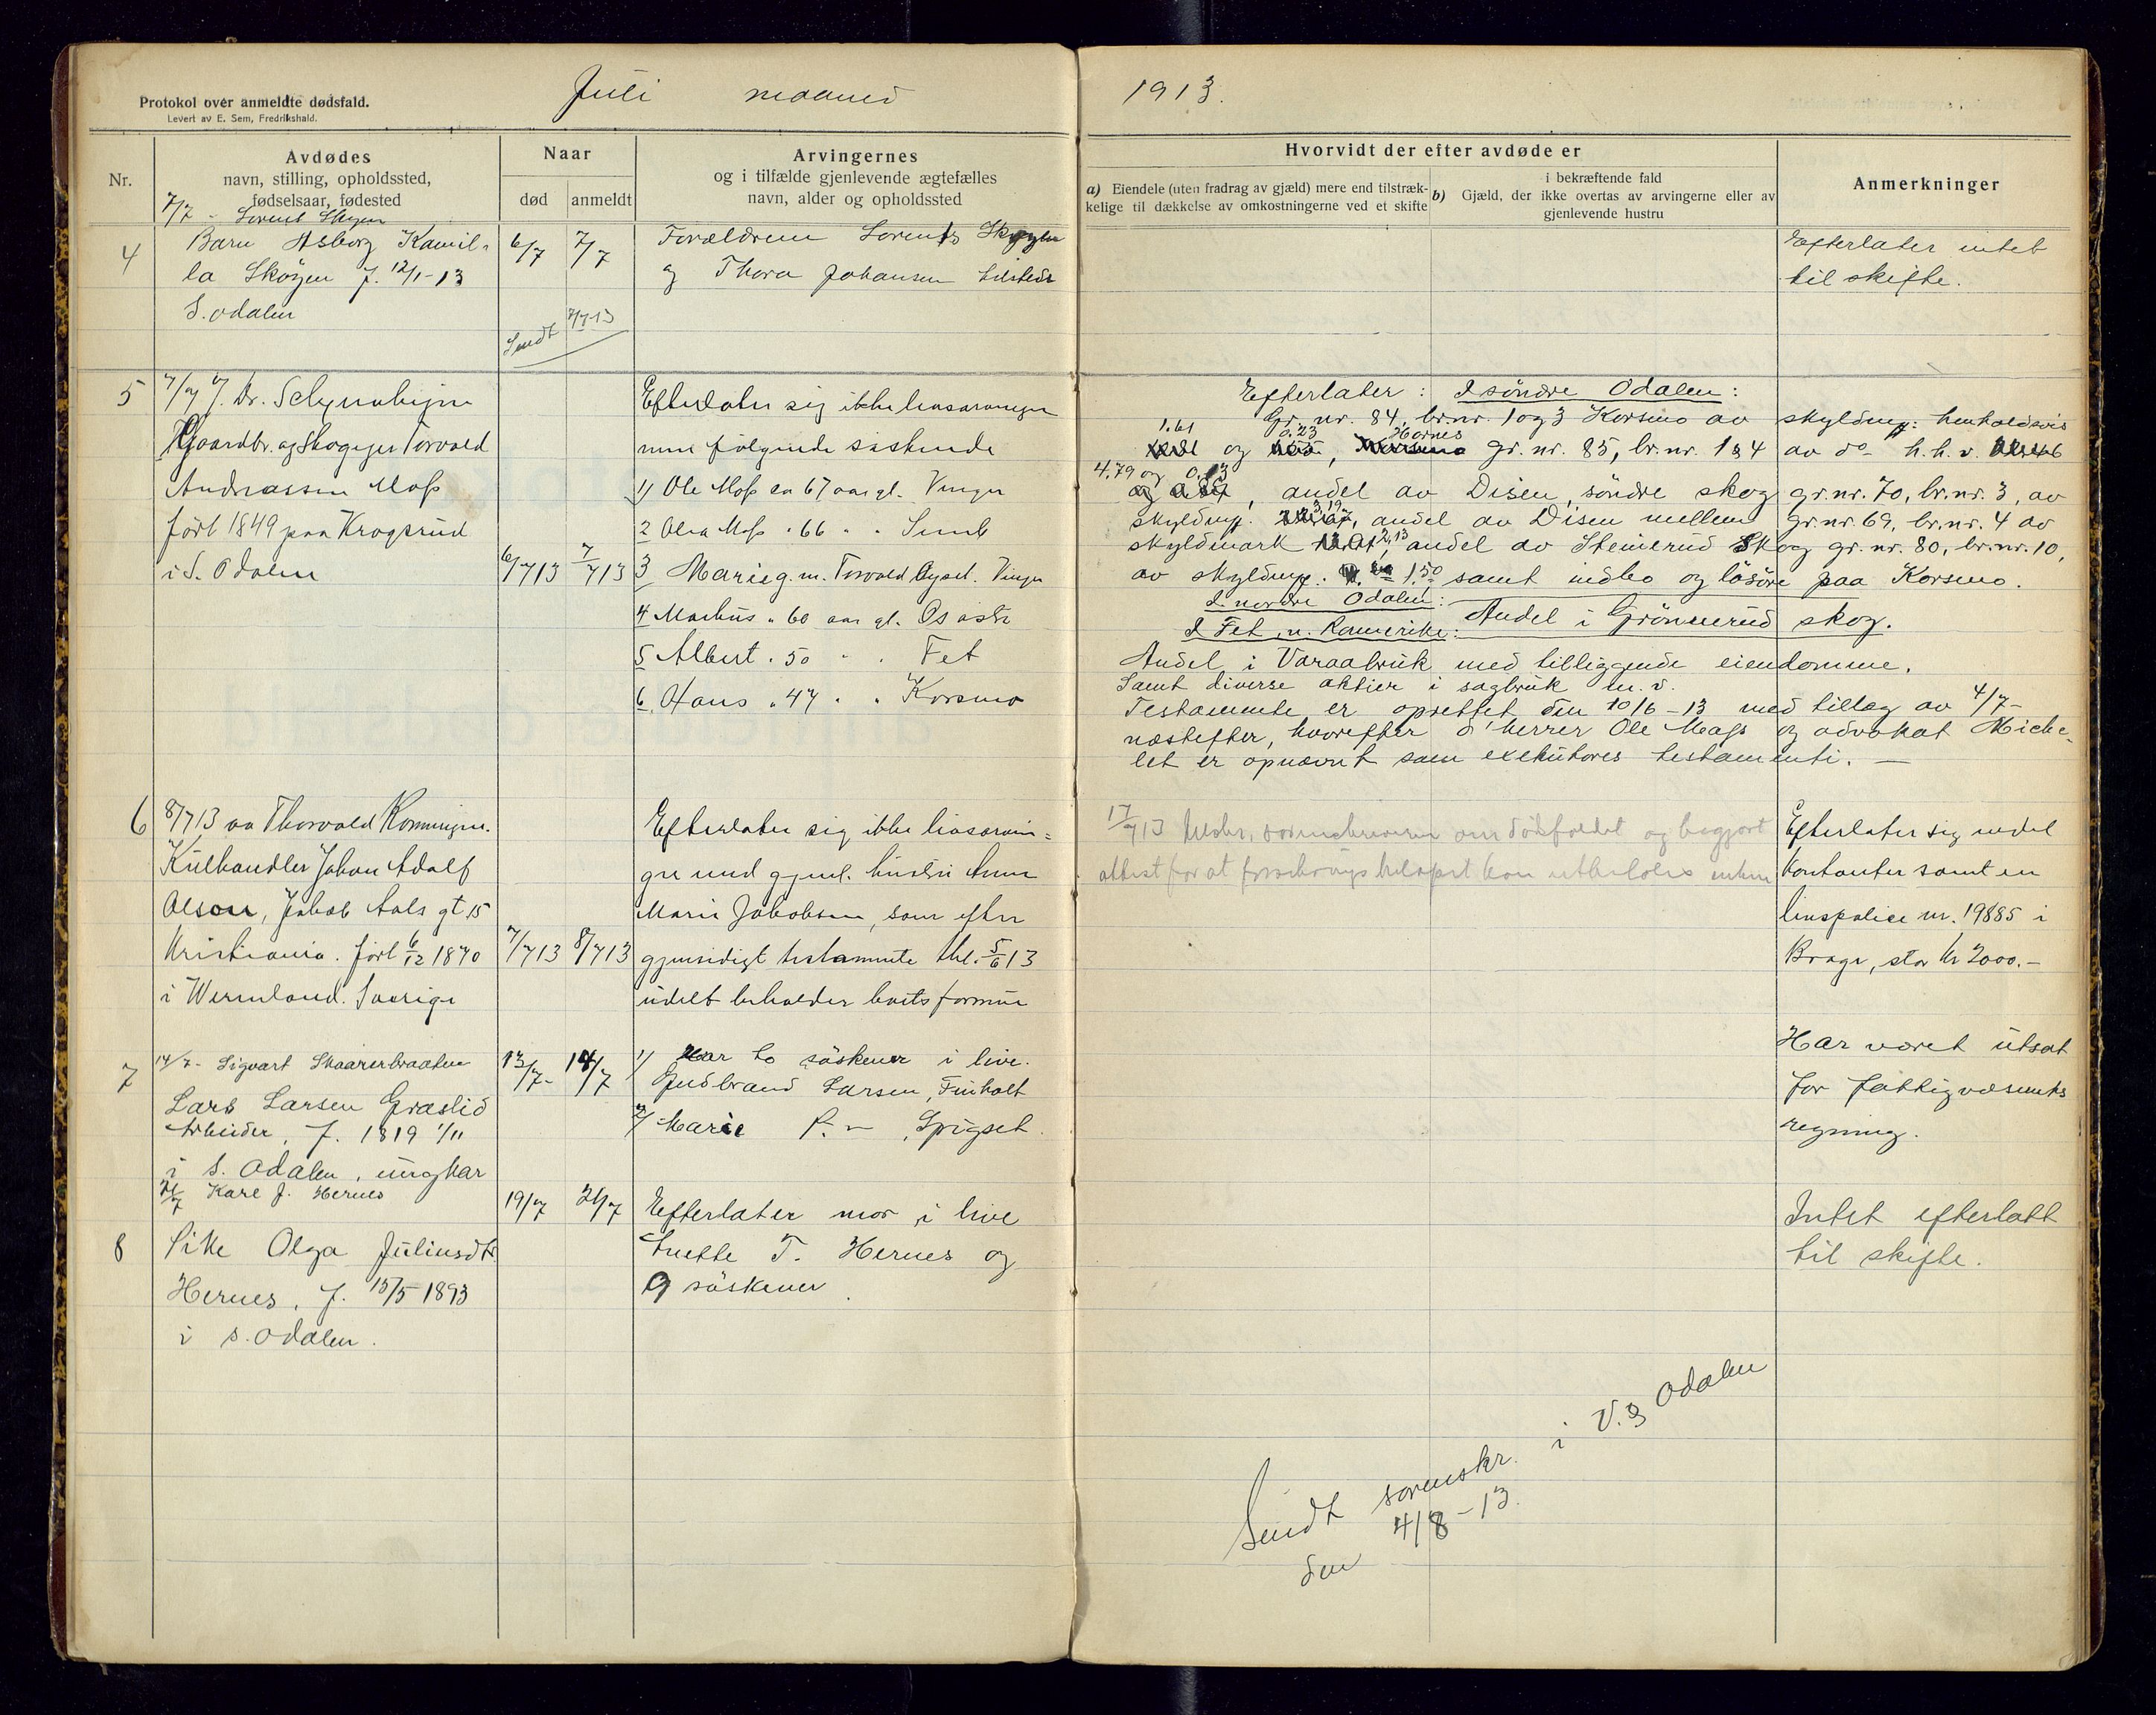 Protokol over anmeldte dødsfald.
Levert av E. Sem, Fredrikshald.
Juli maaned
1913.
Nr.
Avdødes
navn, stilling, opholdssted,
fødselsaar, fødested
Naar
død
anmeldt
Arvingernes
og i tilfælde gjenlevende ægtefælles
navn, alder og opholdssted
Hvorvidt der efter avdøde er
a) Eiendele (uten fradrag av gjæld) mere end tilstræk-
kelige til dækkelse av omkostningerne ved et skifte
i bekræftende fald
b) Gjæld, der ikke overtas av arvingerne eller av
gjenlevende hustru
Anmerkninger
7/7 - Lorents Skøyen
4
Barn Asborg Kamil-
la Skøyen f. 12/1-13
S. odalen
6/7
7/7
Sendt 7/7-13
Forældrene Lorents Skøyen
og Thora Johansen tilsteds
Efterlater intet
til skifte.
5
7/7 f. Dr.
Gaardbr. og Skogejer Torvald
Andreassen Moss
født 1849 paa Krogsrud
i S. Odalen
6/7 13
7/7 13
Efterlater sig ikke livsarvinger
men følgende søskende
1) Ole Moss ca 67 aar gl. Vinger
2 Olea Moss " 66 " "
3 Marie g. m. Torvald Vinger
4 Markus " 60 aar gl. Os østr
5 Albert " 50 " " Fet
6 Hans " 47 " " Korsmo
Efterlater: I søndre Odalen:
Gr. nr. 84, br. nr. 1 og 3 Korsmo av skyldmrk: henholdsvis
1.61 og 0.23, Hernes gr. nr. 85, br. nr. 1 & 4 av do h. h. v.
4.79 og 0.13, andel av Disen, søndre skog gr. nr. 70, br. nr. 3, av
skyldmrk. 3,19, andel av Disen mellem gr. nr. 69, br. nr. 4 av
skyldmark 2,13, andel av Steinerud Skog gr. nr. 80, br. nr. 10,
av skyldmrk: 1.50 samt indbo og løsøre paa Korsmo.
I nordre Odalen: Andel i Grønnerud skog.
I Fet, n. Romerike:
Andel i Varaabruk med tilliggende eiendomme.
Samt diverse aktier i sagbruk m. v.
Testamente er oprettet den 10/6-13 med tillæg av 4/7-
næstefter, hvorefter d'herrer Ole Moss og advokat Miche-
let er opnævnt som exekutores testamenti. —
6
8/7 13 av Thorvald
Kulhandler Johan Adolf
Olson, Jakob Aals gt 15
Kristiania. født 6/12 1870
i Wermland. Sverige
7/7 13
8/7 13
Efterlater sig ikke livsarvin-
ger med gjenl. hustru Anna
Marie Jakobsen, som efter
gjensidigt testamente thl. 5/6 13
udelt beholder boets formue
17/7 13 sorenskriveren om dødsfaldet og begjært
attest for at forsikringsbeløpet kan utbetales enken
Efterlater sig endel
kontanter samt en
livspolice nr. 19885 i
Brage, stor kr 2000.-
7
14/7- Sigvart Skaarerbraaten
Lars Larsen Græslid
Arbeider, f. 1819 1/11
i S. Odalen, ungkar
13/7-
14/7
1) Har to søskener i live.
Gudbrand Larsen, Finholt
2/ Marie " — , Spigset.
Har været utsat
for fattigvæsenets
regning.
21/7 Kare J. Hernes
8
Pike Olga Juliusdtr.
Hernes, f. 15/5 1893
i s. odalen.
19/7
21/7
Efterlater mor i live
T. Hernes og
9 søskener.
Intet efterlatt
til skifte.
Sendt sorenskr. i V. & Odalen
den 4/8-13.